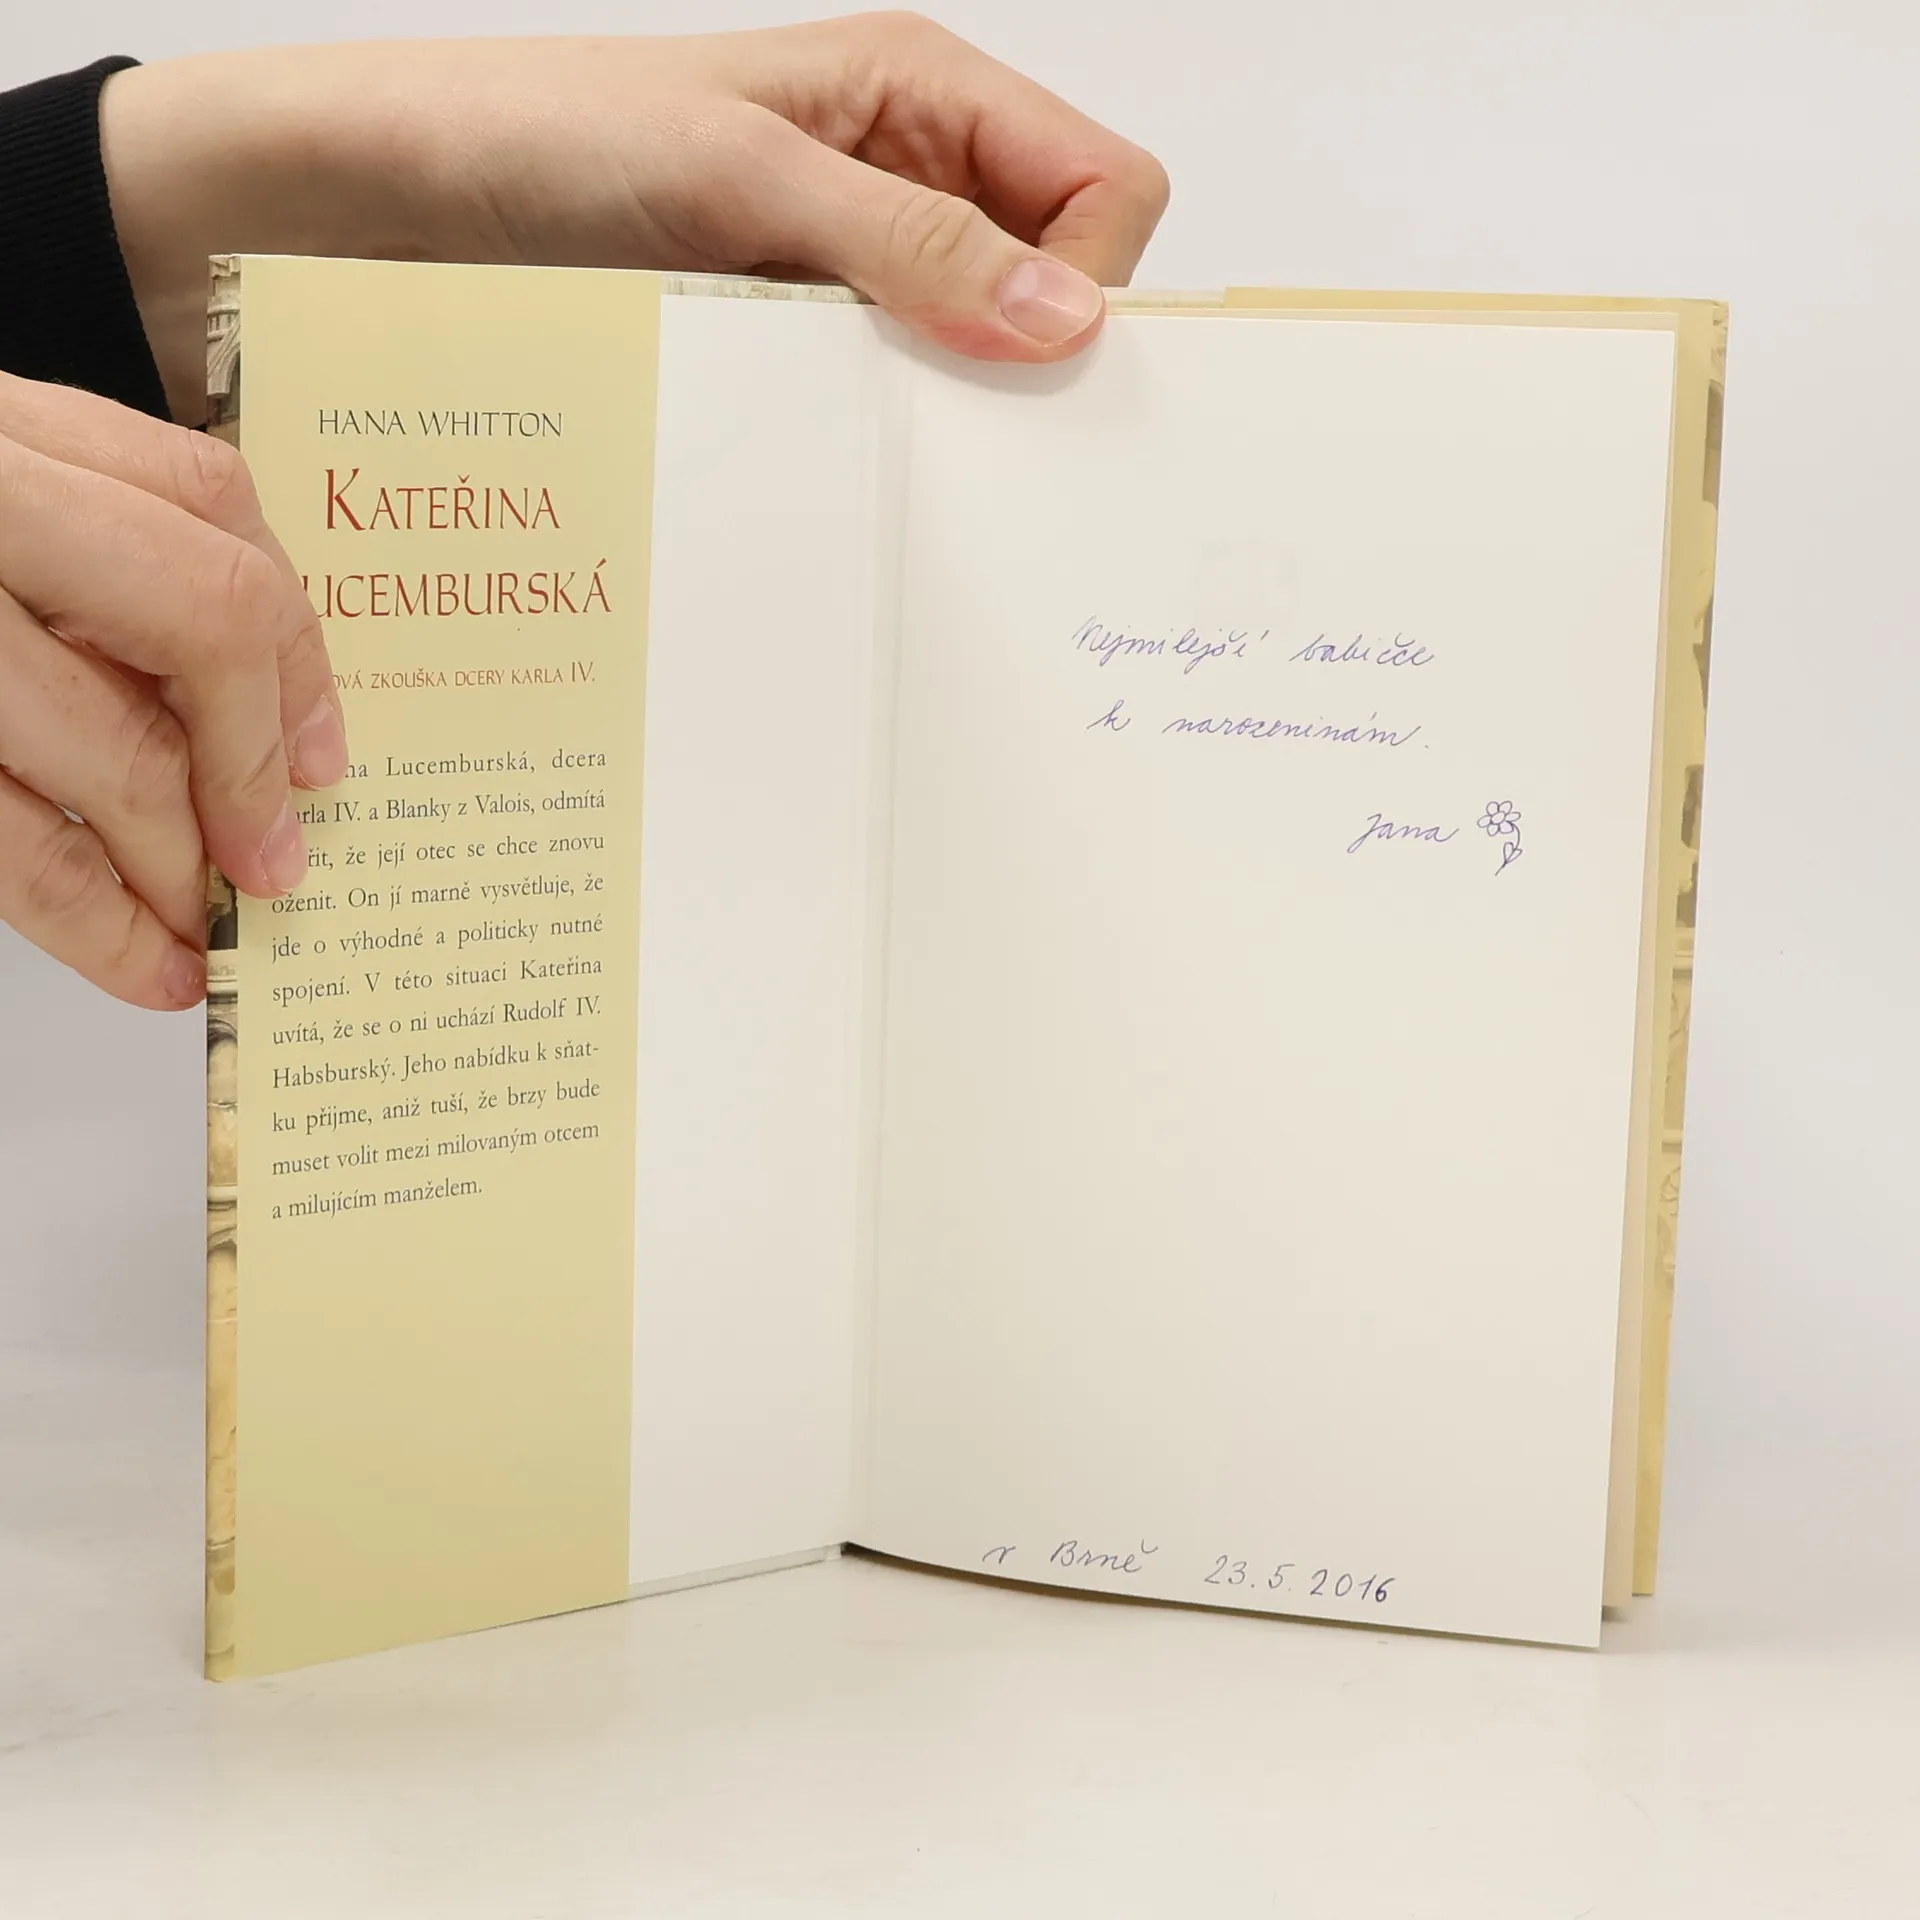 HANA WHITTON
KATEŘINA
UCEMBURSKÁ
OVÁ ZKOUŠKA DCERY KARLA IV.
na Lucemburská, dcera
arla IV. a Blanky z Valois, odmítá
řit, že její otec se chce znovu
oženit. On jí marně vysvětluje, že
jde o výhodné a politicky nutné
spojení. V této situaci Kateřina
uvítá, že se o ni uchází Rudolf IV.
Habsburský. Jeho nabídku k sňat-
ku přijme, aniž tuší, že brzy bude
muset volit mezi milovaným otcem
a milujícím manželem.
Nejmilejší babičce
k narozeninám.
Jana
v Brně 23.5.2016